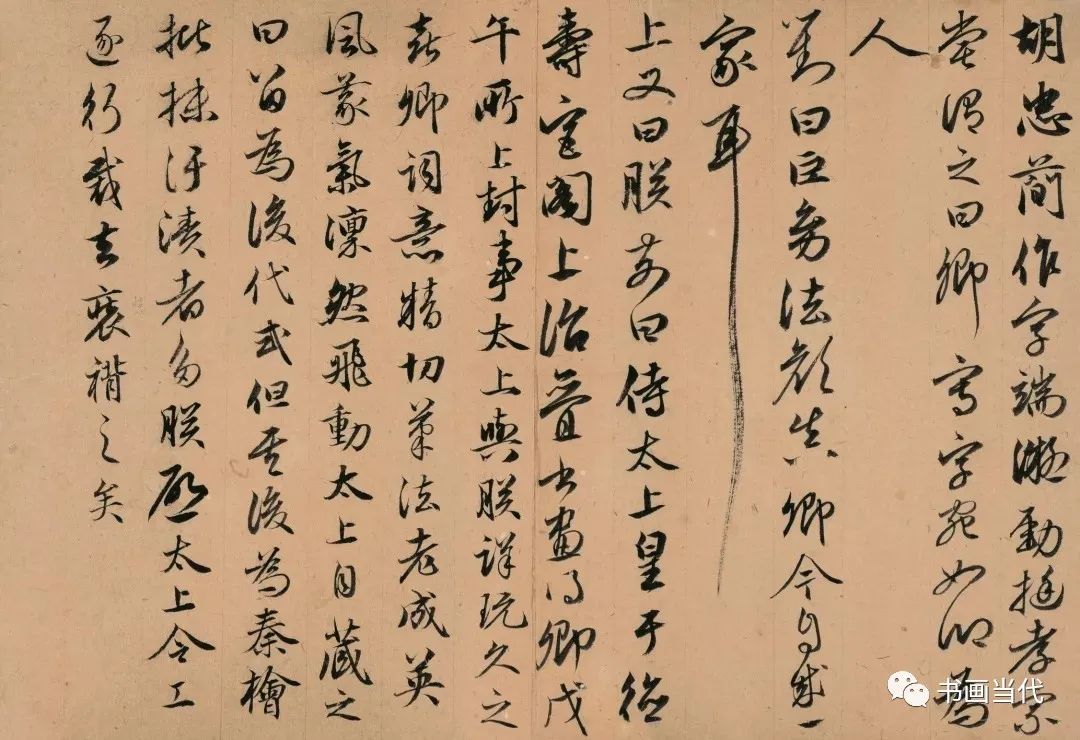 胡忠簡作字端凝勁挺孝宗
嘗謂之曰卿寫字宛如卿為
人
對曰臣幼法顏真卿今自成一
家耳
上又曰朕前日侍太上皇于德
壽宮閣上治疊書畫得卿戊
午所上封事太上與朕詳玩久之
喜卿詞意精切筆法老成英
風義氣凜然飛動太上自藏之
曰留為後代式但其後為秦檜
批抹汙瀆者多朕啟太上令工
逐行裁去裝褙之矣
书画当代